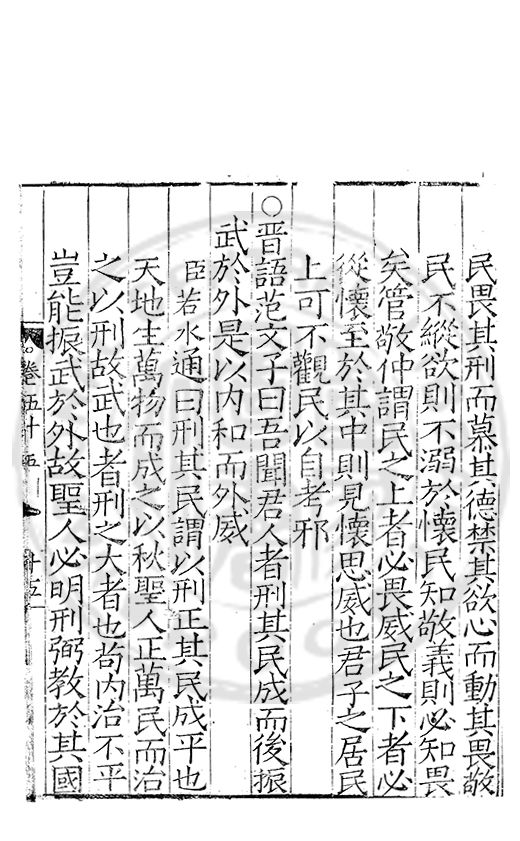 民畏其刑而慕其德禁其欲心而動其畏敬
民不縱欲則不溺於懷民知敬義則必知畏
矣管敬仲謂民之上者必畏威民之下者必
從懷至於其中則見懷思威也君子之居民
上可不觀民以自考邪
○晋語范文子曰吾聞君人者刑其民成而後振
武於外是以内和而外威
臣若水通曰刑其民謂以刑正其民成平也
天地生萬物而成之以秋聖人正萬民而治
之以刑故武也者刑之大者也苟内治不平
豈能振武於外故聖人必明刑弼教於其國
卷五十五
十五